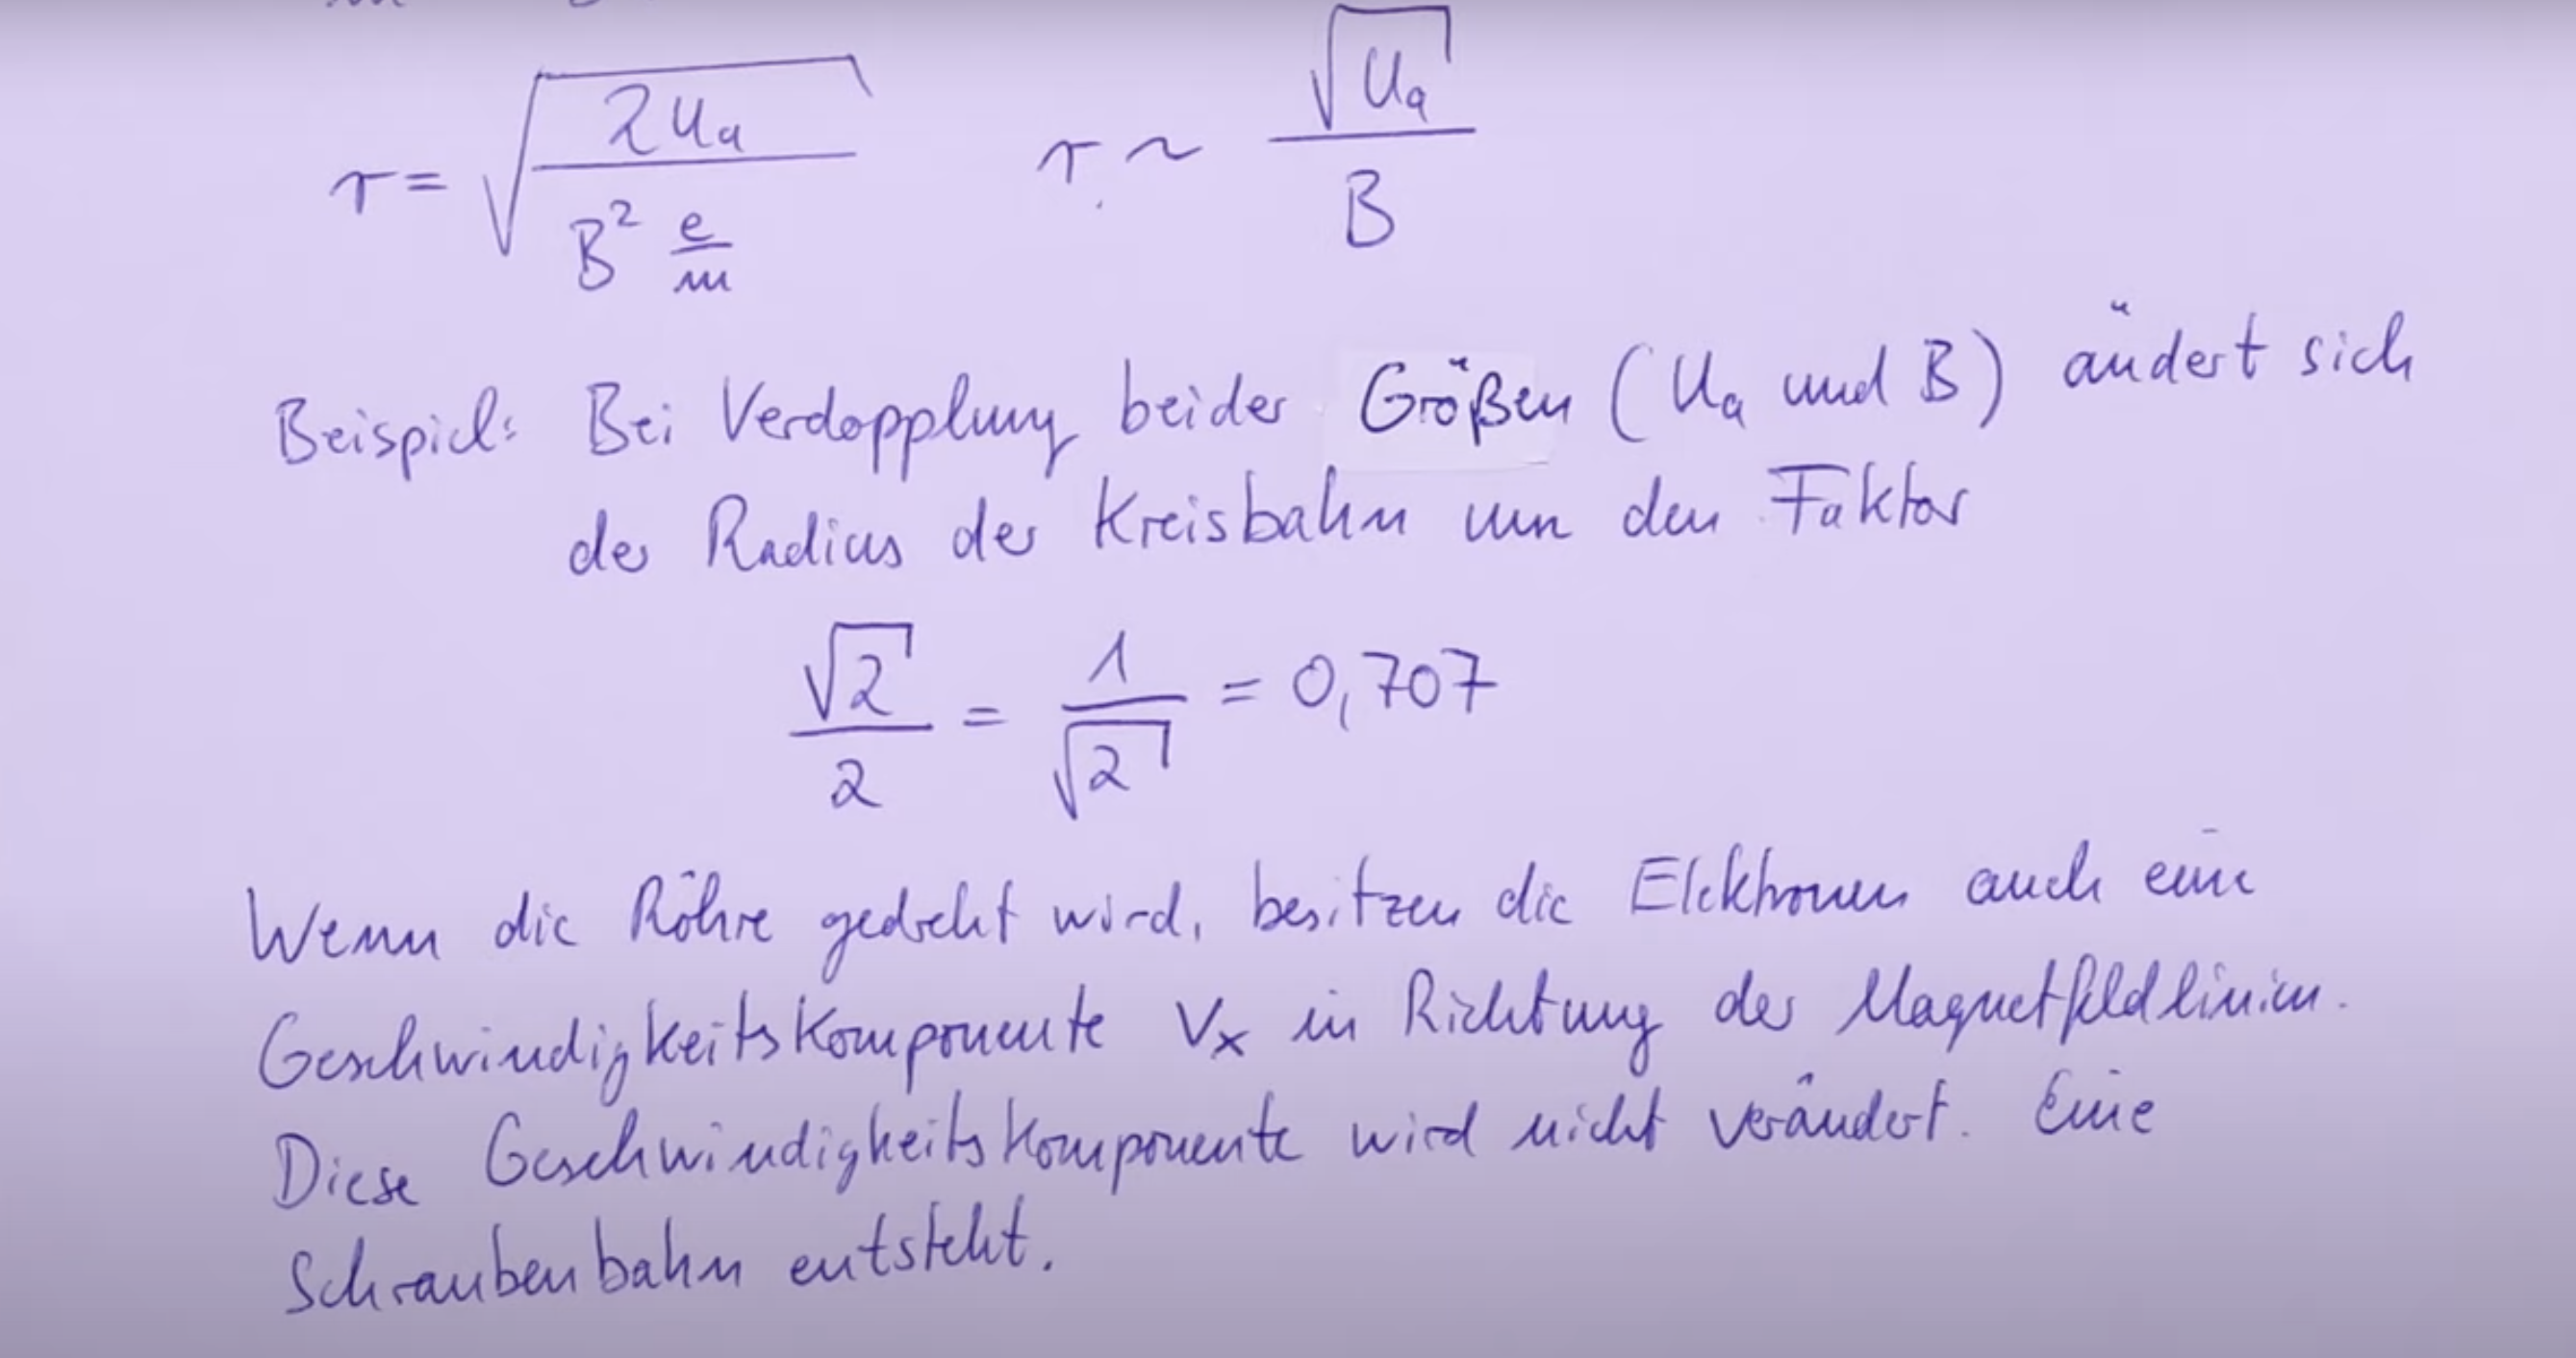 r = √(2Ua / (B² e/m))    r ~ √Ua / B
Beispiel: Bei Verdopplung beider Größen (Ua und B) ändert sich
der Radius der Kreisbahn um den Faktor
√2 / 2 = 1 / √2 = 0,707
Wenn die Röhre gedreht wird, besitzen die Elektronen auch eine
Geschwindigkeitskomponente Vx in Richtung der Magnetfeldlinien.
Diese Geschwindigkeitskomponente wird nicht verändert. Eine
Schraubenbahn entsteht.